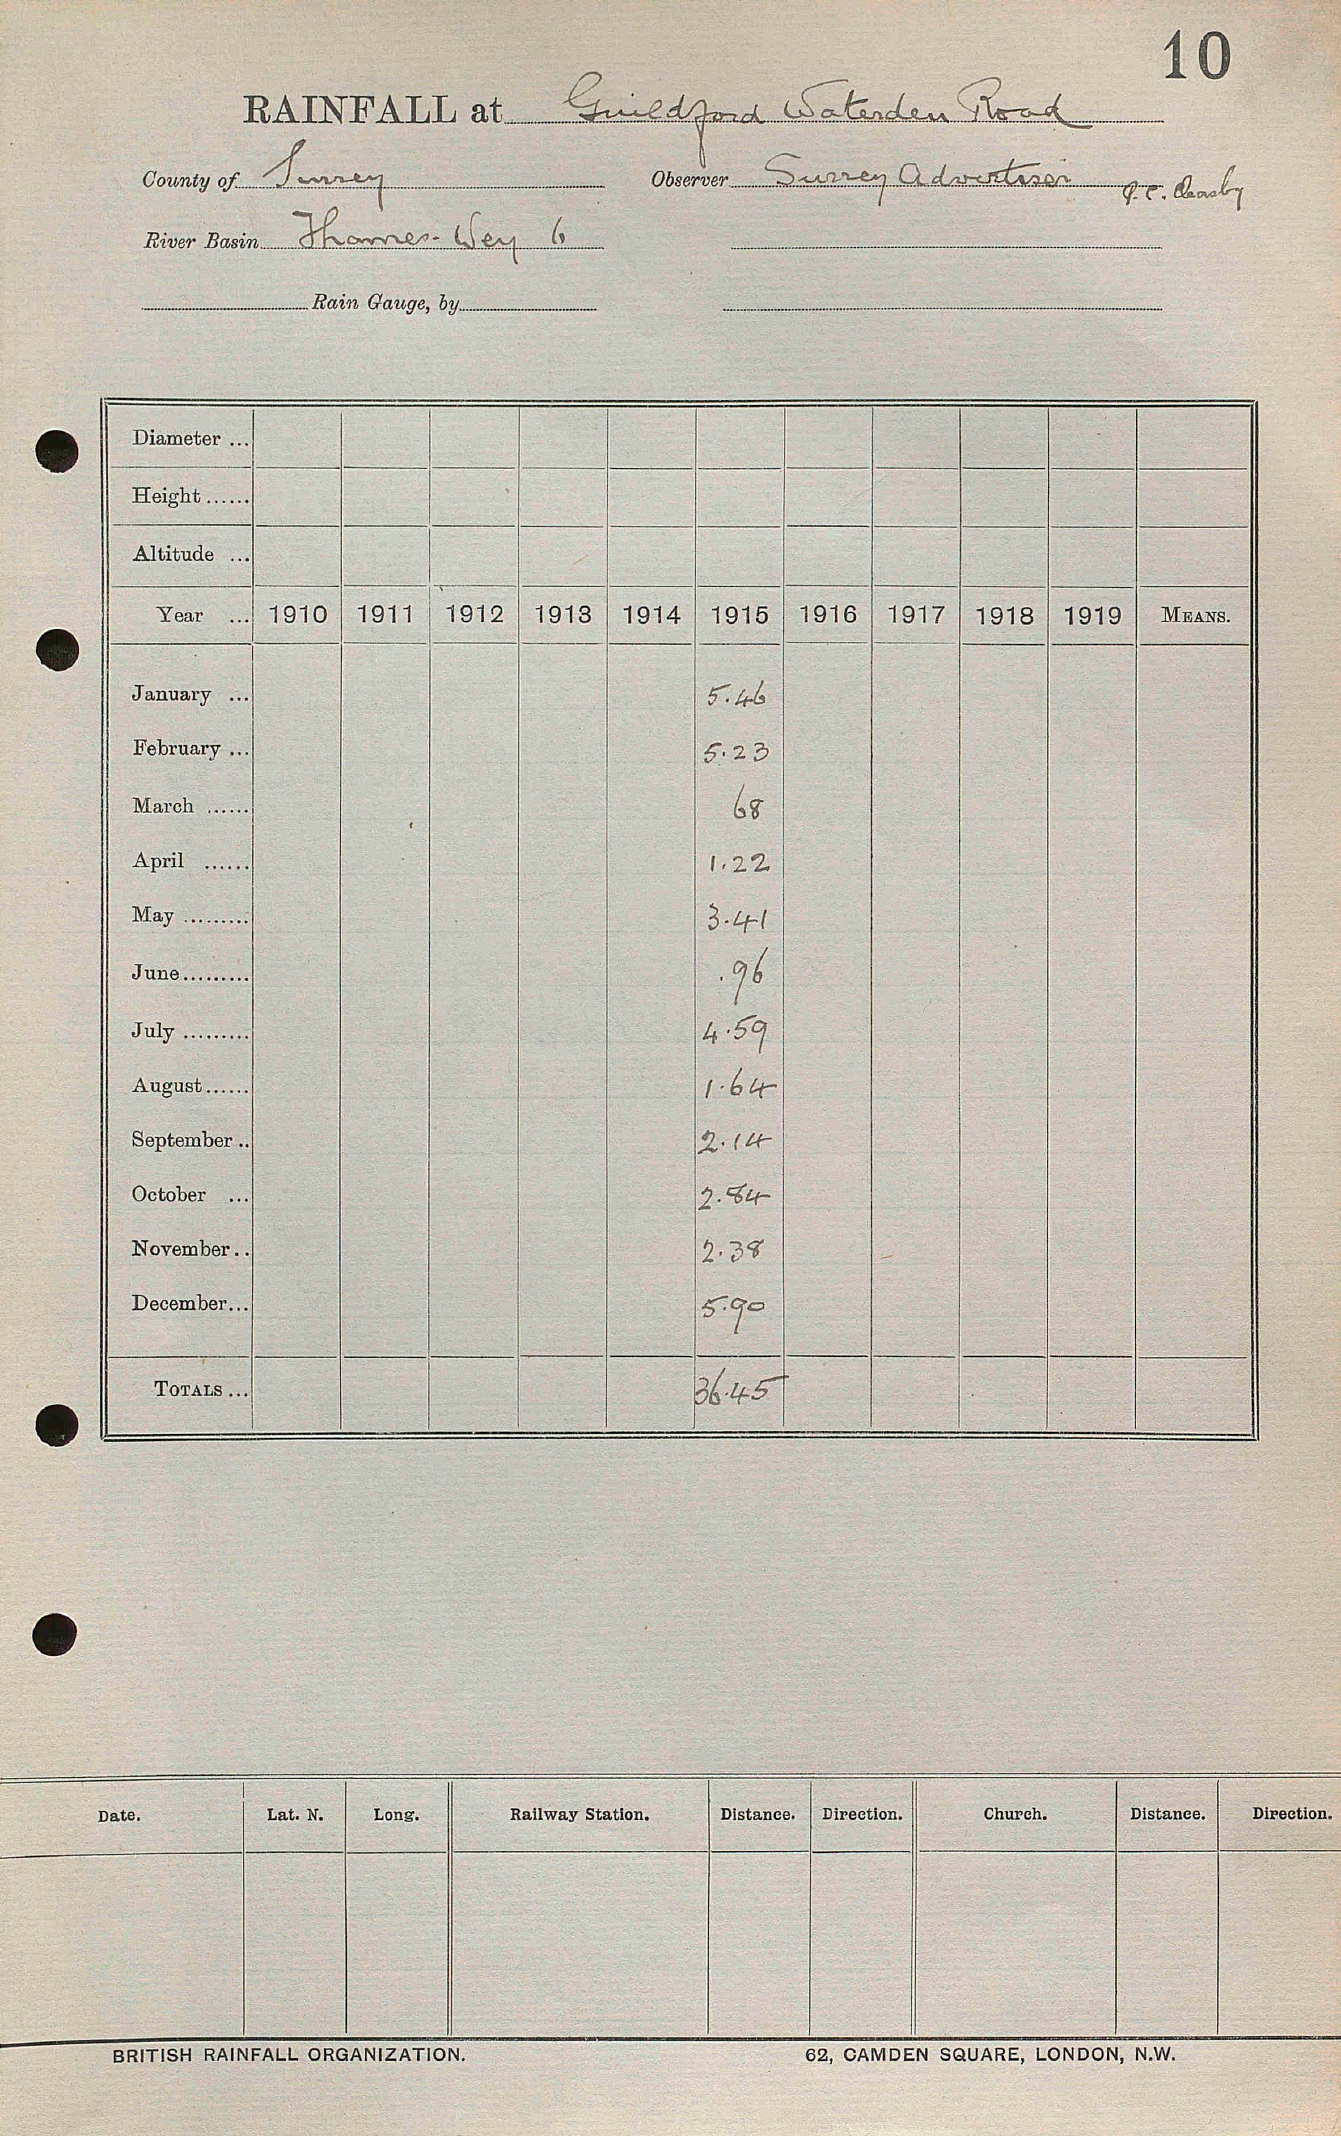 10
RAINFALL at Guildford Waterden Road
County of Surrey Observer Surrey Advertiser
River Basin Thames - Wey 6
Rain Gauge, by
Diameter ...
Height ......
Altitude ...
Year ... 1910 1911 1912 1913 1914 1915 1916 1917 1918 1919 MEANS.
January ... 5.46
February ... 5.23
March ...... 68
April ...... 1.22
May ......... 3.41
June......... .96
July ......... 4.59
August...... 1.64
September.. 2.14
October ... 2.84
November.. 2.38
December... 5.90
TOTALS ... 36.45
Date. Lat. N. Long. Railway Station. Distance. Direction. Church. Distance. Direction.
BRITISH RAINFALL ORGANIZATION. 62, CAMDEN SQUARE, LONDON, N.W.